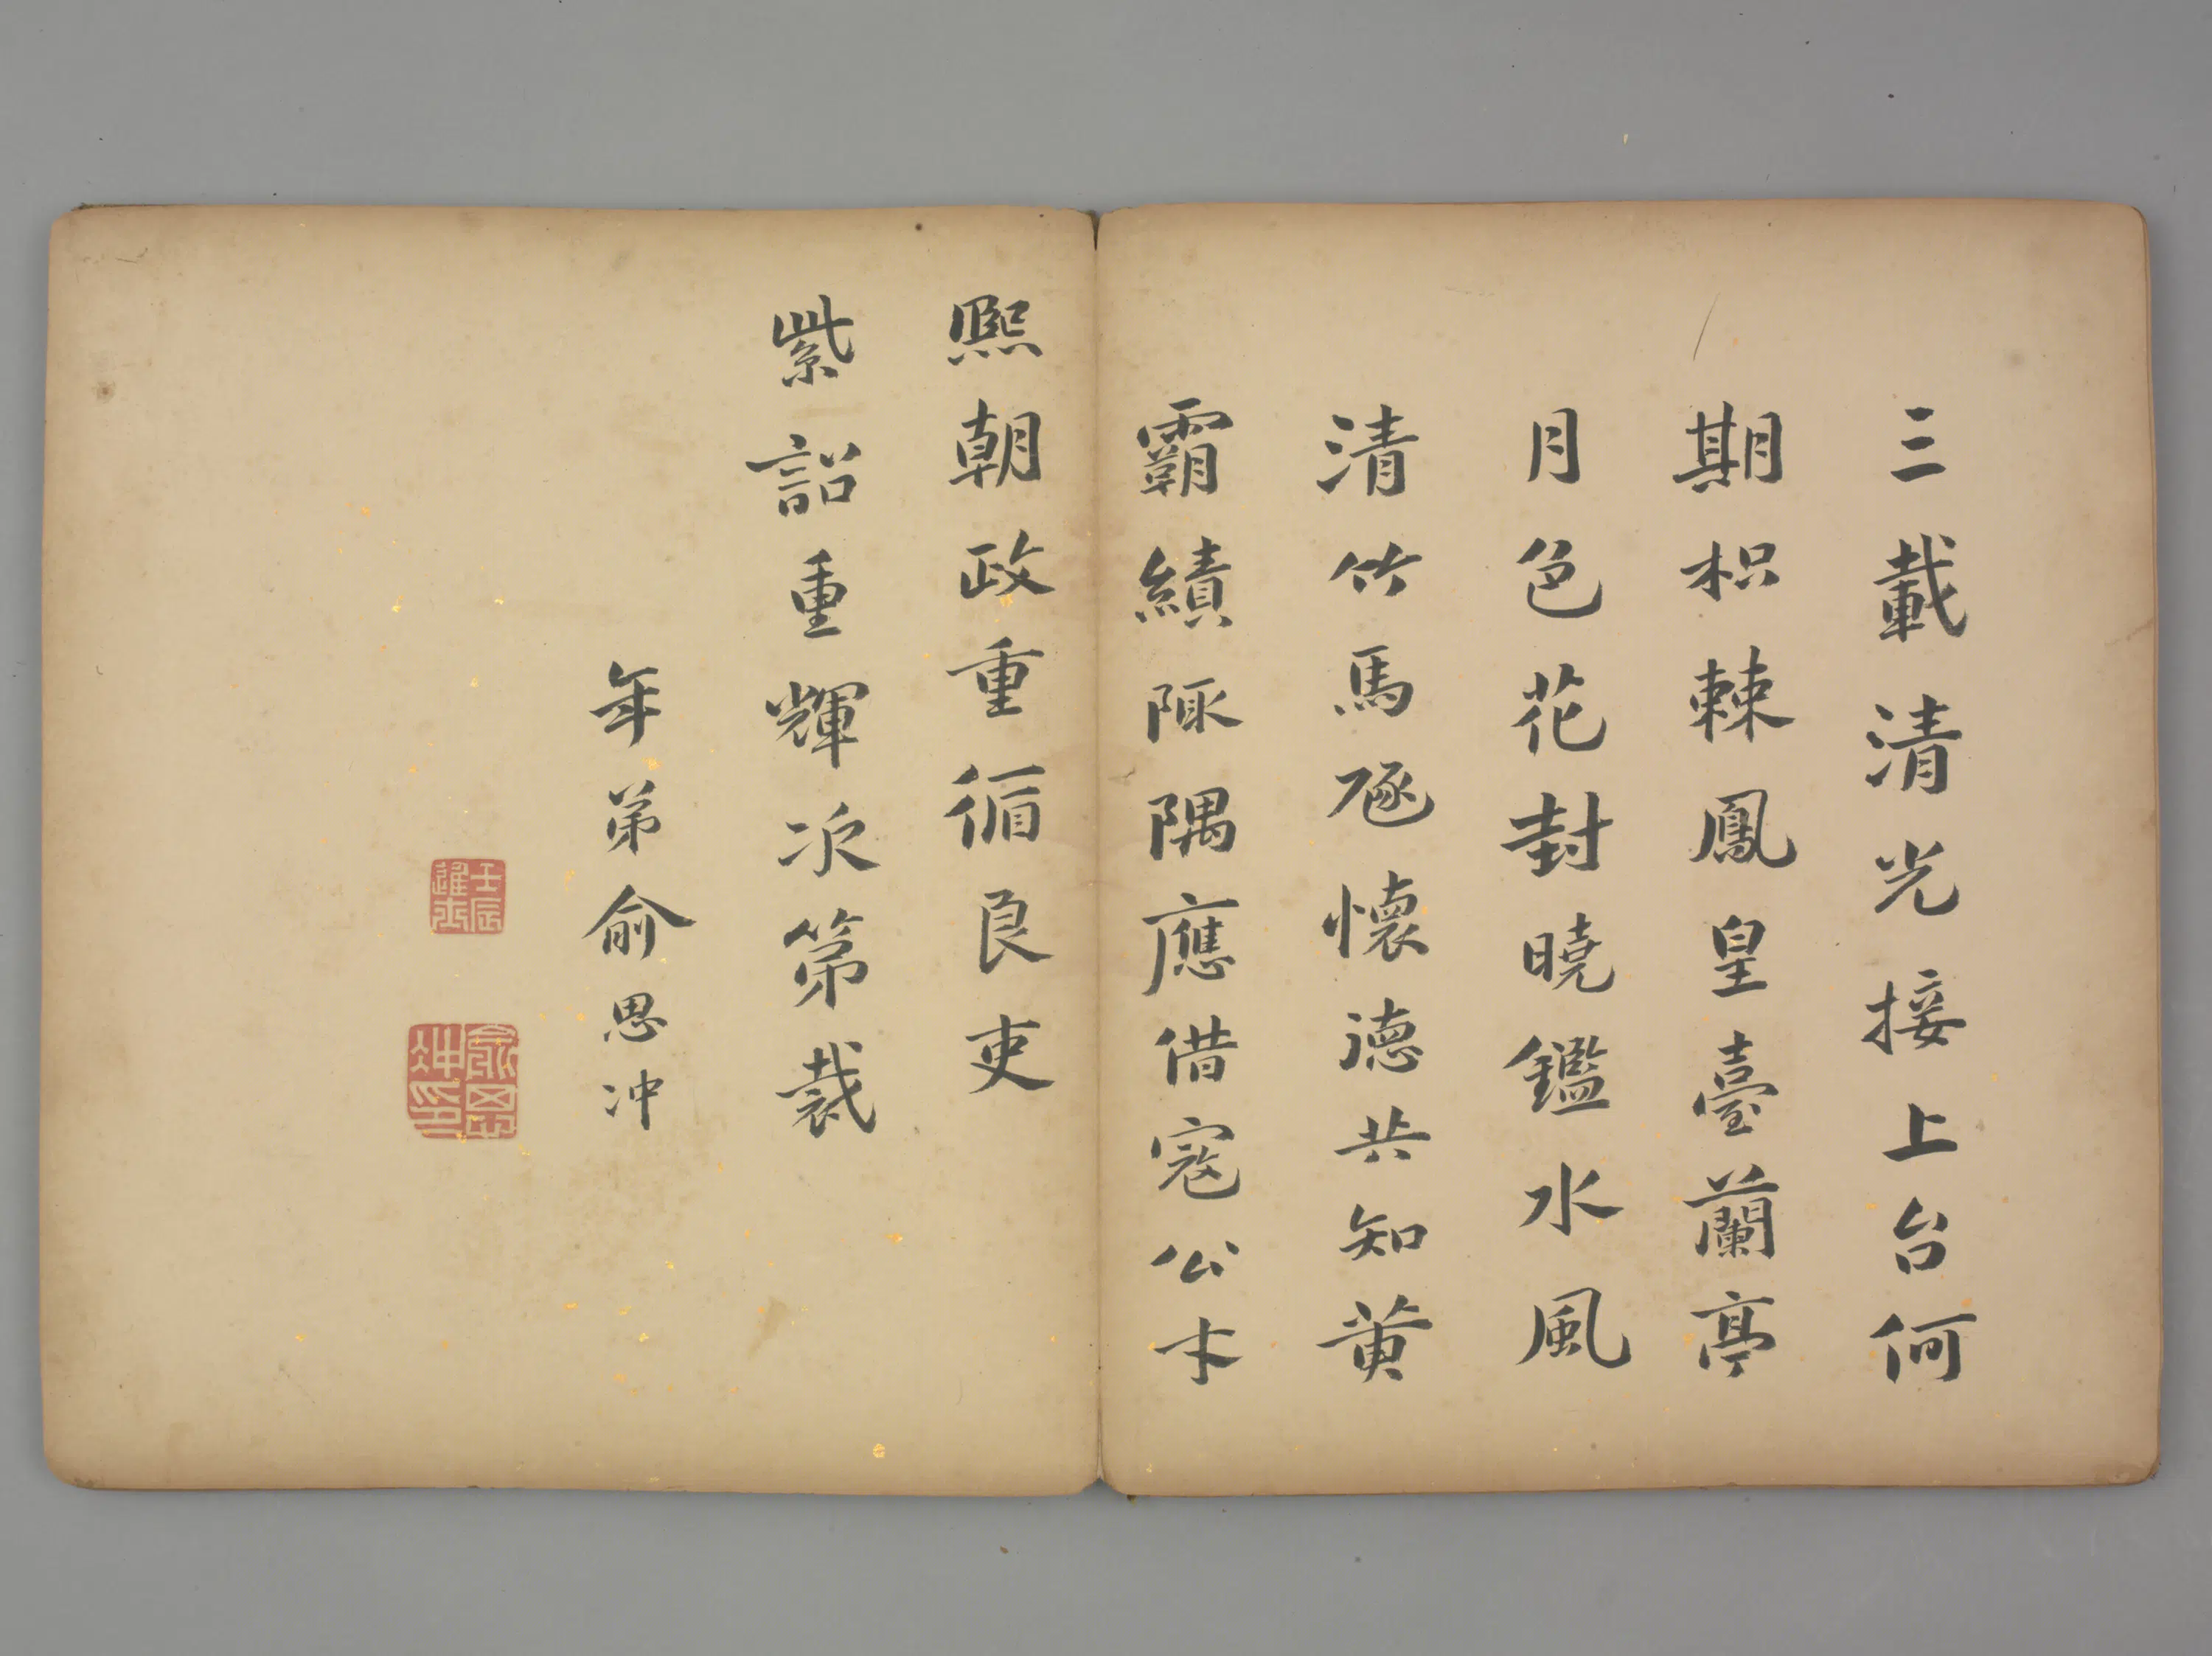 三載清光接上台何
期枳棘鳳皇臺蘭亭
月色花封曉鑑水風
清竹馬豗懷德共知黃
霸績陬隅應借寇公才
熙朝政重循良吏
紫詔重輝次第裁
年弟俞思冲
壬辰進士
俞思冲印